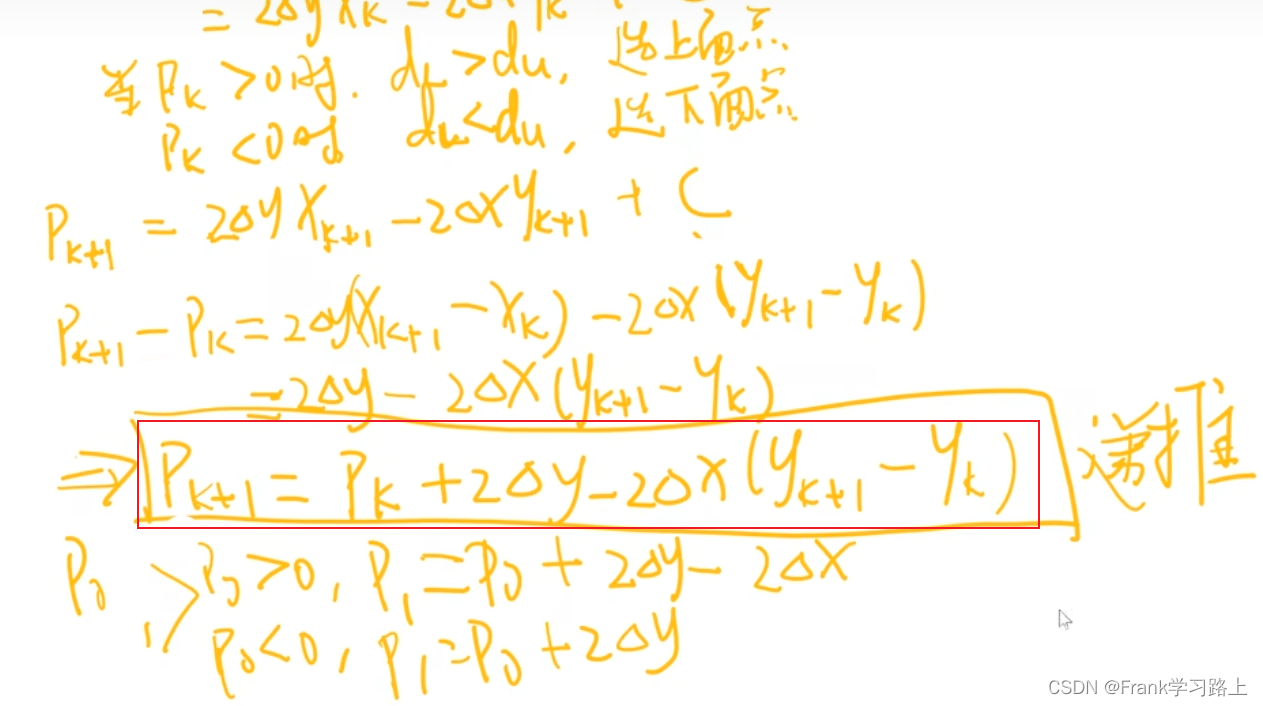 = 2ΔyXk - 2ΔxYk
当 Pk > 0时. dL > du, 选上面点.
Pk < 0时 dL < du, 选下面点.
Pk+1 = 2ΔyXk+1 - 2ΔxYk+1 + C
Pk+1 - Pk = 2Δy(Xk+1 - Xk) - 2Δx(Yk+1 - Yk)
= 2Δy - 2Δx(Yk+1 - Yk)
⇒ Pk+1 = Pk + 2Δy - 2Δx(Yk+1 - Yk) 递推
P0 P0 > 0, P1 = P0 + 2Δy - 2Δx
P0 < 0, P1 = P0 + 2Δy
CSDN @Frank学习路上